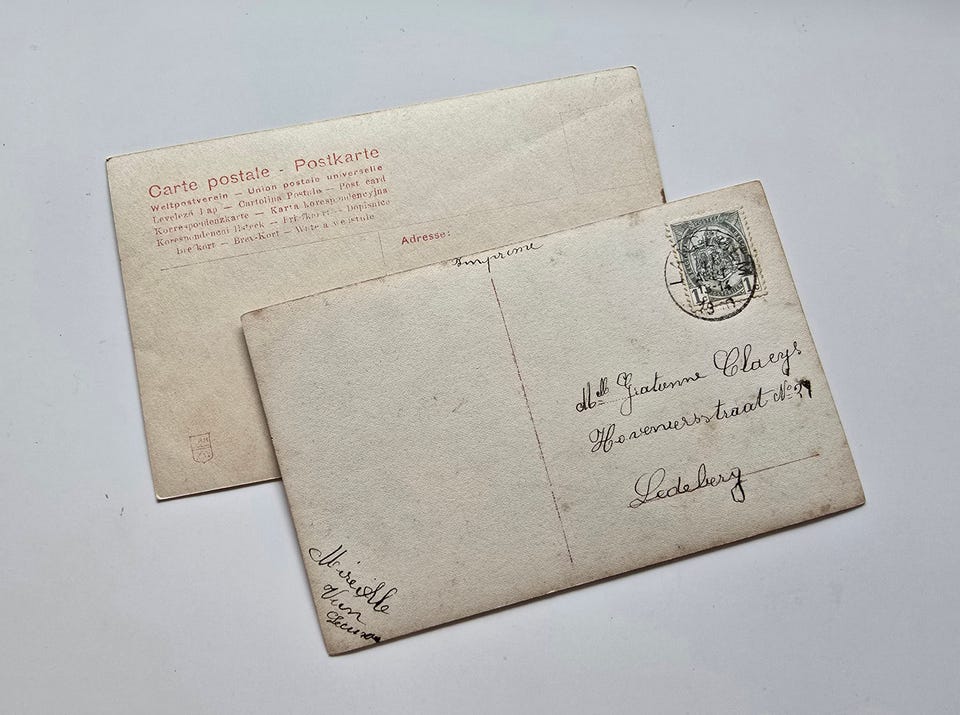 Carte postale - Postkarte
Weltpostverein — Union postale universelle
Levelező Lap — Cartolina Postale — Post card
Korrespondenzkarte — Karta korespondencyjna
Korespondenční lístek — Dopisnice
Brevkort — Brev-Kort
Adresse:
Imprimé
1
Mlle Gratienne Claeys
Hoveniersstraat No
Ledeberg
Mireille
Van